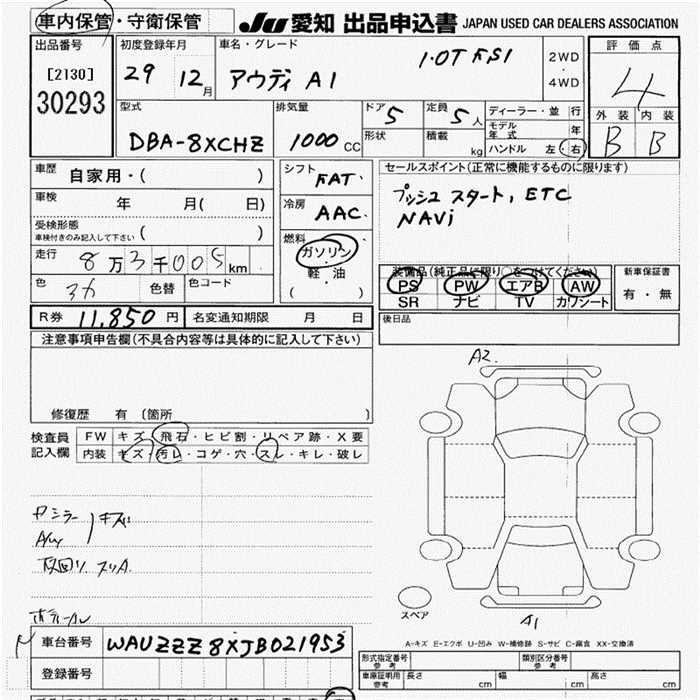 車内保管・守衛保管 JU 愛知 出品申込書 JAPAN USED CAR DEALERS ASSOCIATION
出品番号 [2130] 30293
初度登録年月 29 12月
車名・グレード アウディ A1 1.0T FSI
2WD・4WD
評価点 4
外装 内装
B B
型式 DBA-8XCHZ
排気量 1000 CC
ドア 5 定員 5人
形状 積載 kg
ディーラー・並行
モデル年式 年
ハンドル 左・右
車歴 自家用・( )
車検 年 月( 日)
受検形態 車検付きのみ記入して下さい ( )
走行 8万3千005km
色 色替 色コード
シフト FAT
冷房 AAC
燃料 ガソリン・軽油 ( )
セールスポイント(正常に機能するものに限ります)
プッシュスタート, ETC
NAVi
装備品(純正品に限り○をつけてください)
PS PW エアB AW
SR ナビ TV カワシート
新車保証書 有・無
R券 11,850円 名変通知期限 月 日
後日品
注意事項申告欄(不具合内容等は具体的に記入して下さい)
修復歴 有〔箇所 〕
検査員記入欄
FW キズ・飛石・ヒビ割・リペア跡・X要
内装 キズ・汚レ・コゲ・穴・スレ・キレ・破レ
A2
キズ
スペア
A1
A-キズ E-エクボ U-凹み W-補修跡 S-サビ C-腐食 XX-交換済
車台番号 WAUZZZ8XJB021953
登録番号
形式指定番号 参考 類別区分番号 参考
車庫証明用 参考 長さ cm 幅 cm 高さ cm